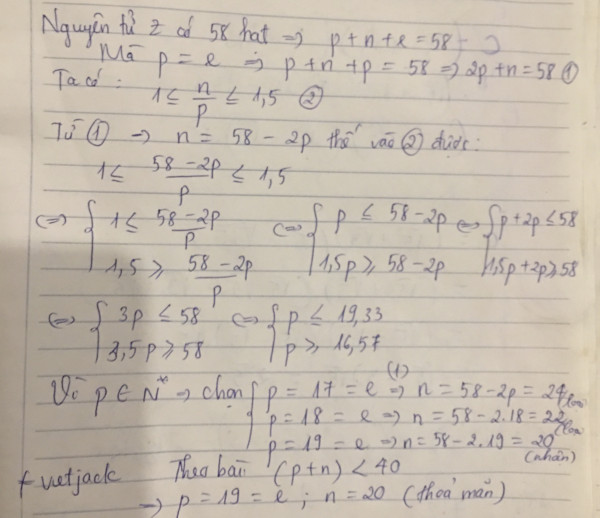 Nguyên tử Z có 58 hạt => p+n+e = 58
Mà p = e => p+n+p = 58 => 2p+n = 58 ①
Ta có: 1 ≤ n/p ≤ 1,5 ②
Từ ① => n = 58 - 2p thế vào ② được:
1 ≤ (58-2p)/p ≤ 1,5
<=> { 1 ≤ (58-2p)/p <=> { p ≤ 58-2p <=> { p+2p ≤ 58
1,5 ≥ (58-2p)/p 1,5p ≥ 58-2p 1,5p+2p ≥ 58
<=> { 3p ≤ 58 <=> { p ≤ 19,33
3,5p ≥ 58 p ≥ 16,57
Vì p ∈ N* => chọn { p = 17 = e (1) => n = 58-2p = 24 (loại
p = 18 = e => n = 58-2.18 = 22 (loại
p = 19 = e => n = 58-2.19 = 20 (nhận)
vietjack Theo bài (p+n) < 40
=> p = 19 = e ; n = 20 (thoả mãn)